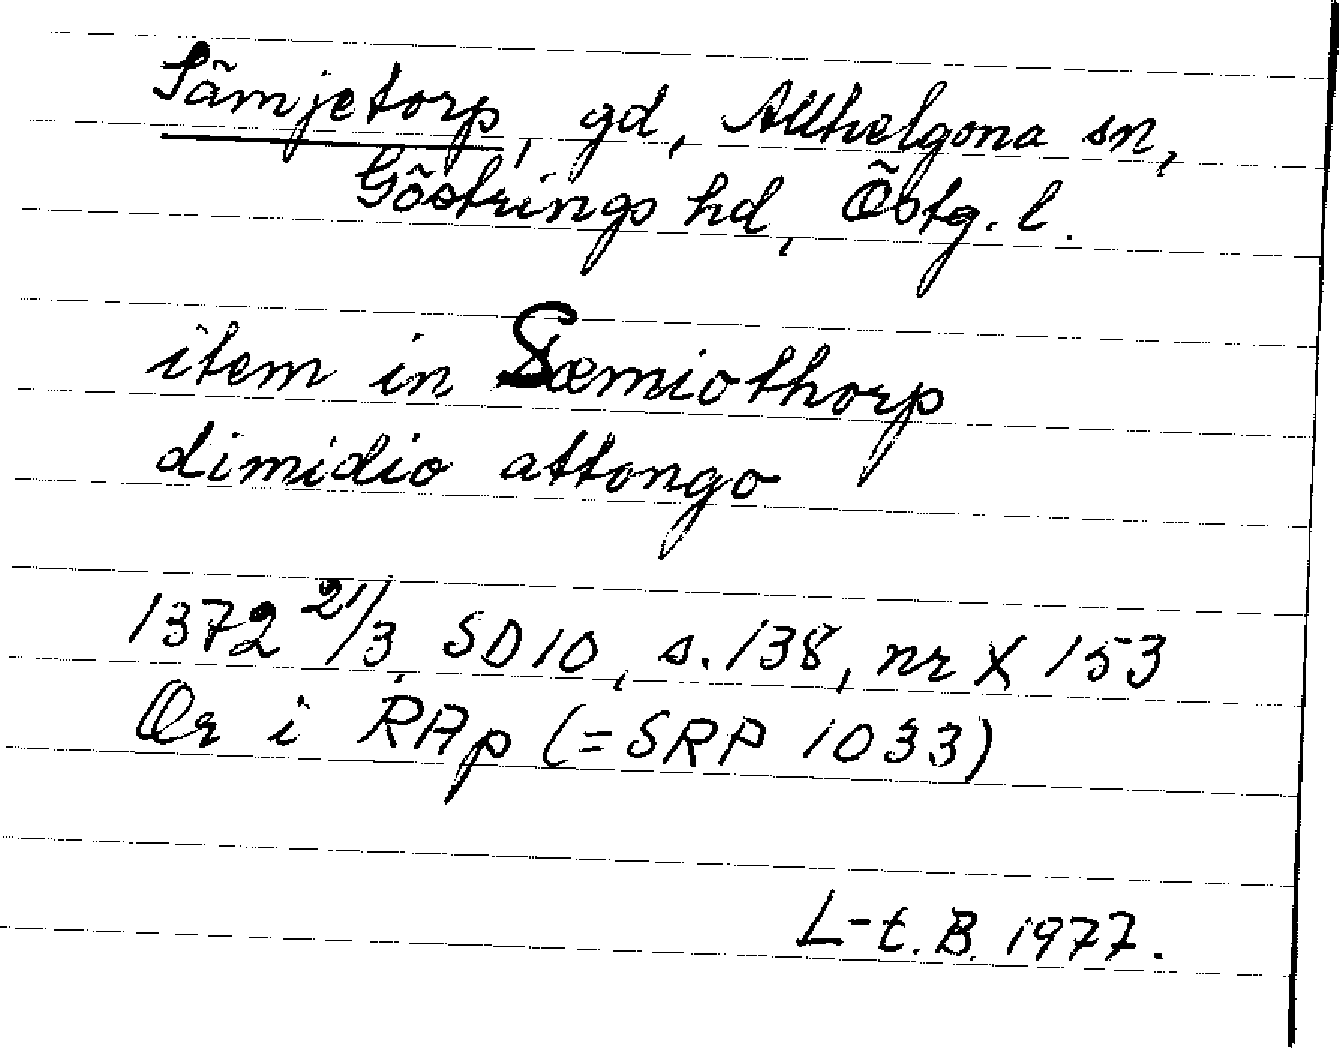 Sämjetorp, gd, Allhelgona sn,
Göstrings hd, Östg. l.
item in Sæmiothorp
dimidio attongo
1372 21/3, SD 10, s. 138, nr X 153
Or i RAp (= SRP 1033)
L-t. B. 1977.